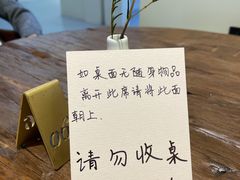 如桌面无随身物品
离开此席请将此面
朝上.
请勿收桌